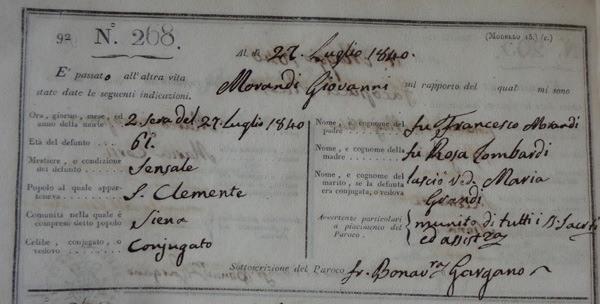 92 N.° 268. (MODELLO 15.) (c.)
Al dì 27. Luglio 1840.
E' passato all'altra vita Morandi Giovanni sul rapporto del qual mi sono
state date le seguenti indicazioni.
Ora, giorno, mese, ed anno della morte 2 Sera del 27. Luglio 1840
Età del defunto 61.
Mestiere, o condizione del defunto Sensale
Popolo al quale apparteneva S. Clemente
Comunità nella quale è compreso detto popolo Siena
Celibe, conjugato, o vedovo Conjugato
Nome, e cognome del padre fu Francesco Morandi
Nome, e cognome della madre fu Rosa Lombardi
Nome, e cognome del marito, se la defunta era conjugata, o vedova lasciò ved. Maria Grandi
Avvertenze particolari a piacimento del Paroco munito di tutti i
ed
Sottoscrizione del Paroco fr. Bonav.ra Gargano